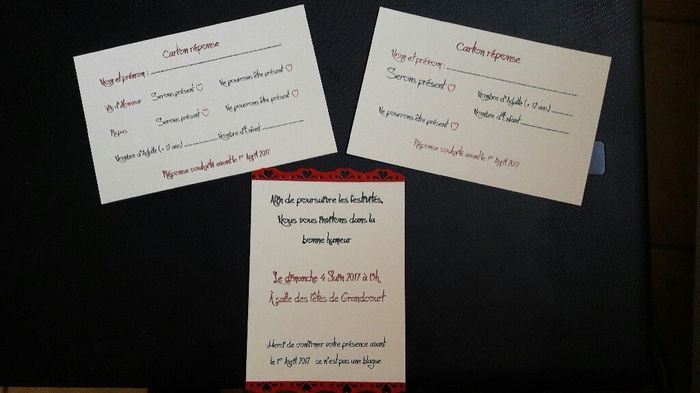 Carton réponse
Nom et prénom :
Vin d'Honneur Serons présent Ne pourrons être présent
Repas Serons présent Ne pourrons être présent
Nombre d'Adulte (+ 12 ans) Nombre d'Enfant
Réponse souhaité avant le 1er Avril 2017
Carton réponse
Nom et prénom :
Serons présent Nombre d'Adulte (+ 12 ans)
Nombre d'Enfant
Ne pourrons être présent
Réponse souhaité avant le 1er Avril 2017
Afin de poursuivre les festivités,
Nous vous invitons dans la
bonne humeur
Le dimanche 4 Juin 2017 à 13h,
À salle des fêtes de Grandcourt
Merci de confirmer votre présence avant
le 1er Avril 2017 se n'est pas une blague